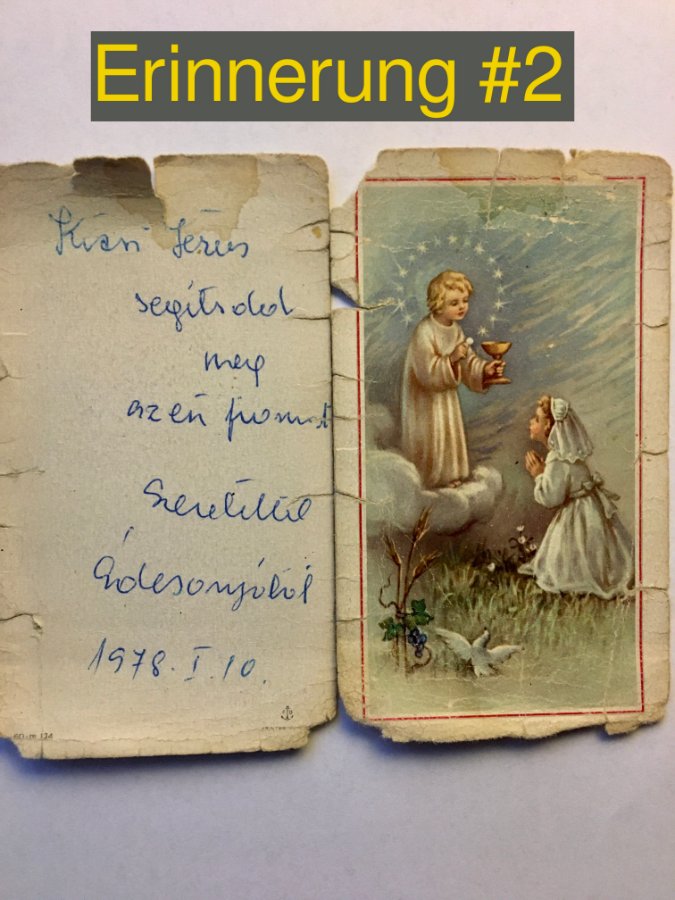 Erinnerung #2
Kicsi Jézus
segítsded
meg
az én fiamat
Szeretettel
Édesanyjától
1978. I. 10.